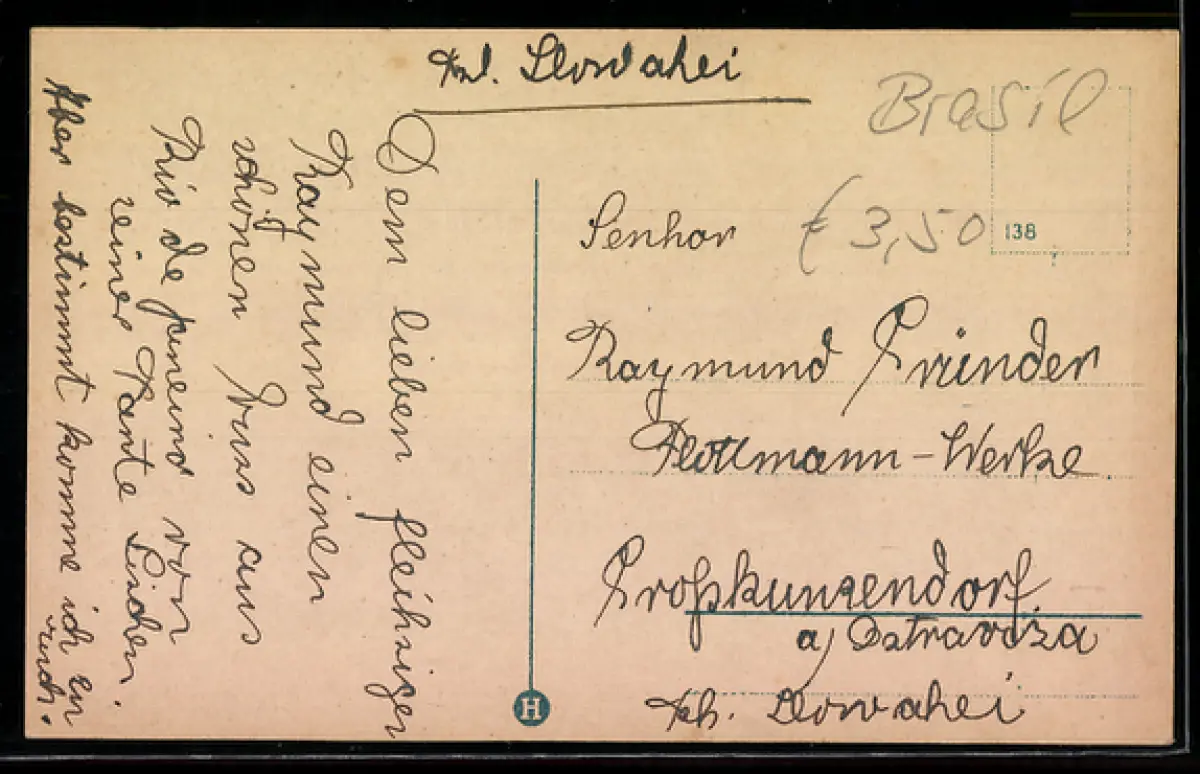 Tsl. Slowakei
Brasil
€ 3,50
138
Dem lieben fleihsigen
Raymund einen
schönen Gruss aus
Rio de Janeiro von
seiner Tante Lischen.
Aber bestimmt komme ich zu
rück.
Senhor
Raymund Gründer
Flottmann-Werke
Großkunzendorf
a/ Ostravoza
Tsch. Slowakei
H